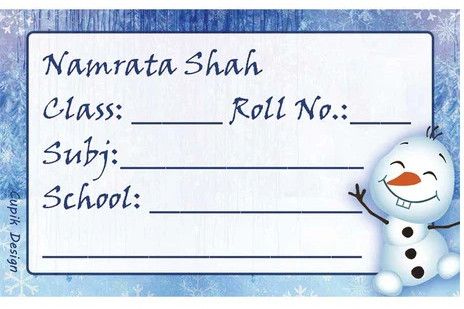 Namrata Shah
Class: ______ Roll No.:____
Subj:________________
School: ______________
_____________________
Cupik Design